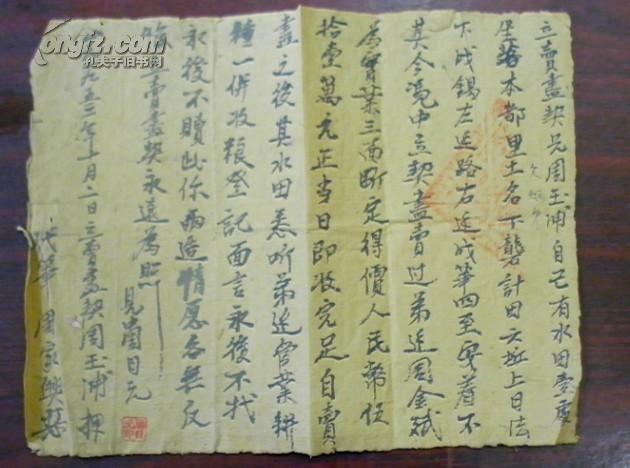 立賣盡契兄周玉浦自己有水田壹處
坐落本都里土名下龔計田六坵上日法
下成錫左近路右近成華四至寫着不
其今憑中立契盡賣过弟近周金斌
為實業三面断定得價人民幣伍
拾壹萬元正当日即收完足自賣
盡之後其水田悉听弟近管業耕
種一併收粮登記面言永後不找
永後不贖此係兩造情愿各無反
立賣盡契永遠為照
見周日元
一九五三年十月二日立賣盡契周玉浦押
代筆周家興
ongfz.com
孔夫子旧书网